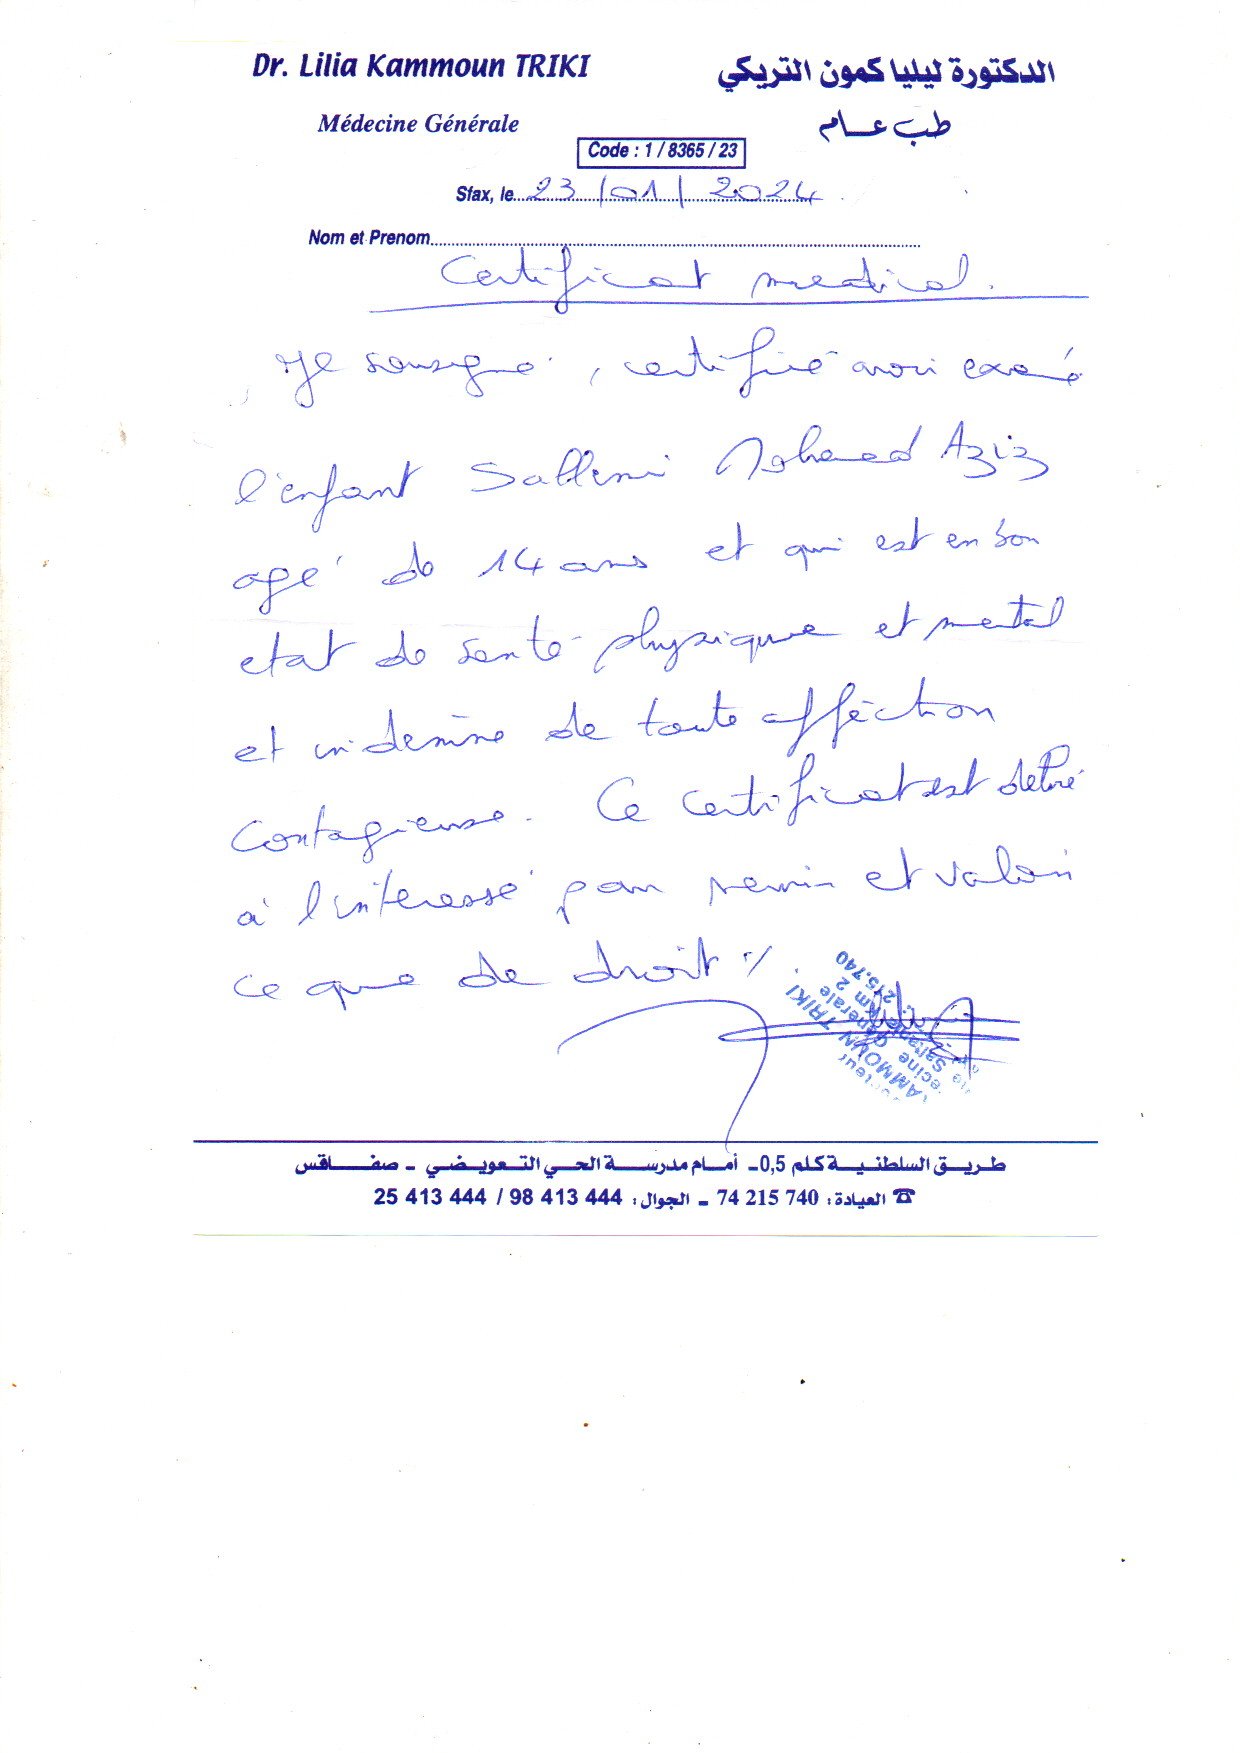 Dr. Lilia Kammoun TRIKI
الدكتورة ليليا كمون التريكي
Médecine Générale
طب عام
Code : 1 / 8365 / 23
Sfax, le 23/01/2024
Nom et Prenom
Certificat medical.
Je sousigné, certifie avoir
l'enfant Sallemi Mohamed Aziz
agé de 14 ans et qui est en bon
etat de santé physique et mental
et indemne de toute afféction
Contagieuse. Ce certificat est délivré
à l'intéressé pour servir et valoir
ce que de droit ./.
AMMOUN TRIKI
215.740
طريق السلطنية كلم 0,5 - أمام مدرسة الحي التعويضي - صفاقس
☎ العيادة: 740 215 74 - الجوال: 444 413 98 / 444 413 25